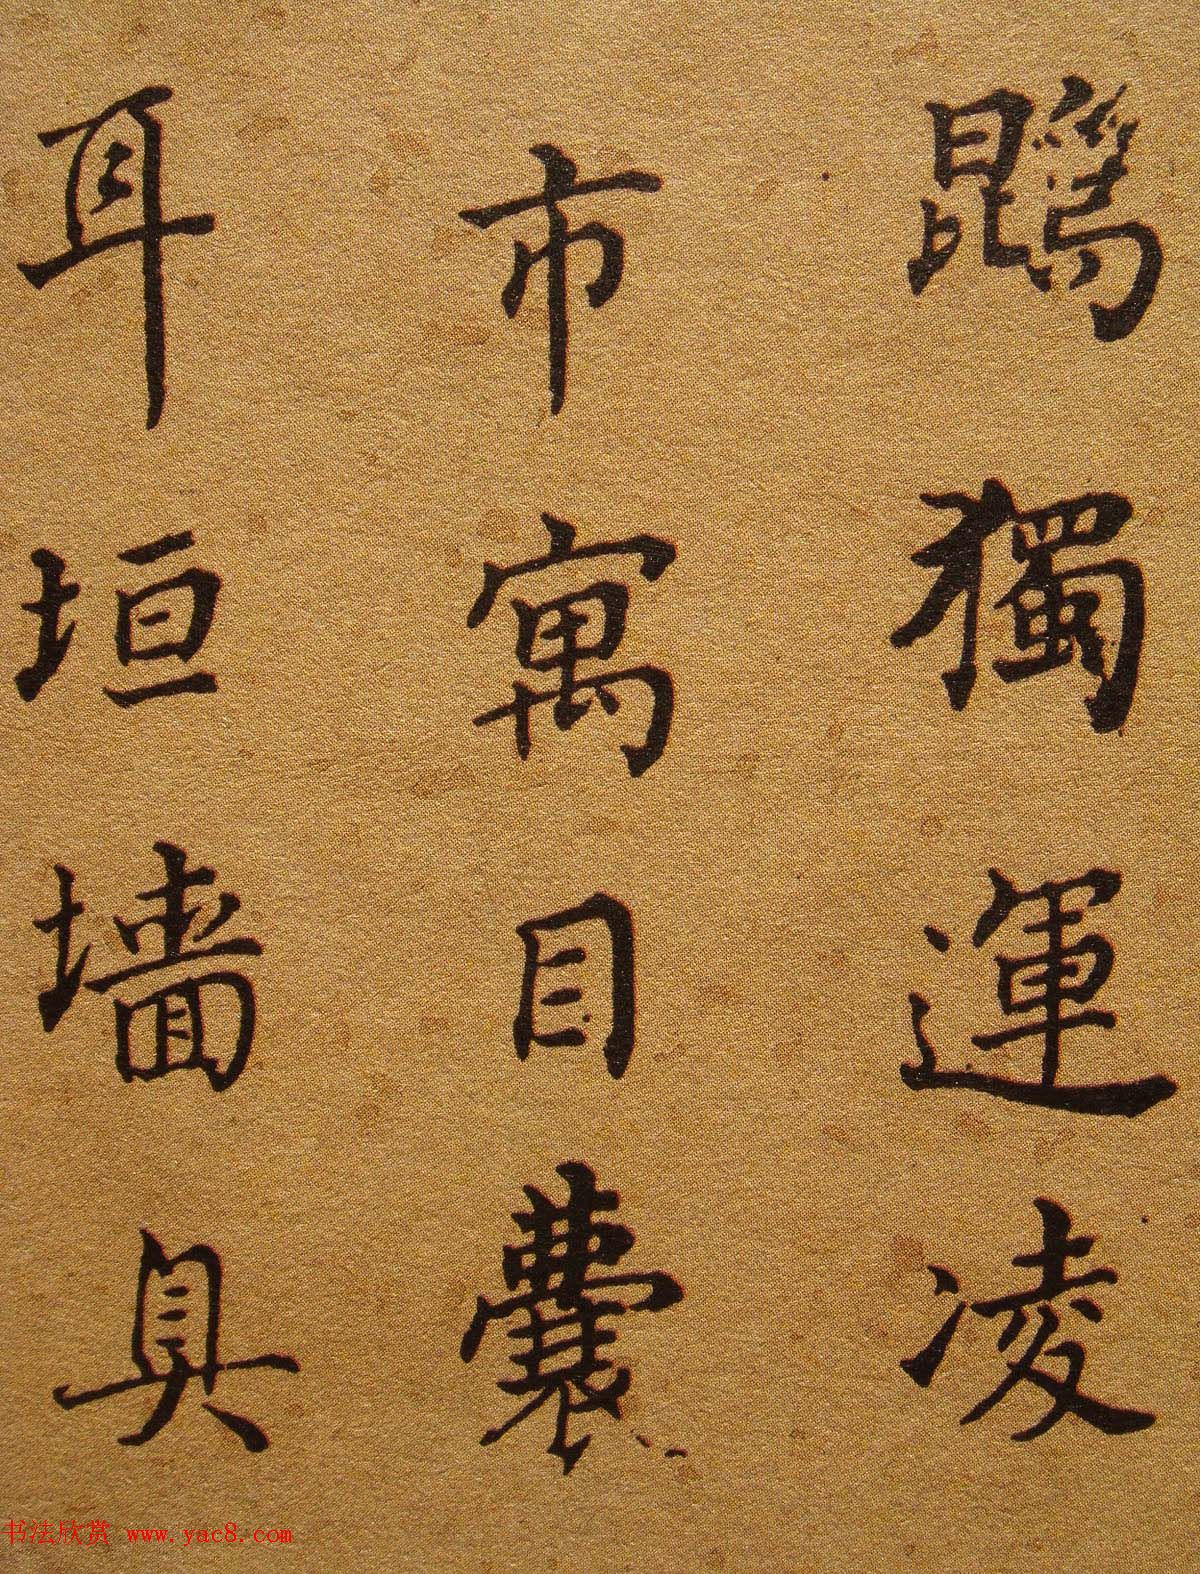 鵾獨運凌
市寓目囊
耳垣墻具
书法欣赏 www.yac8.com